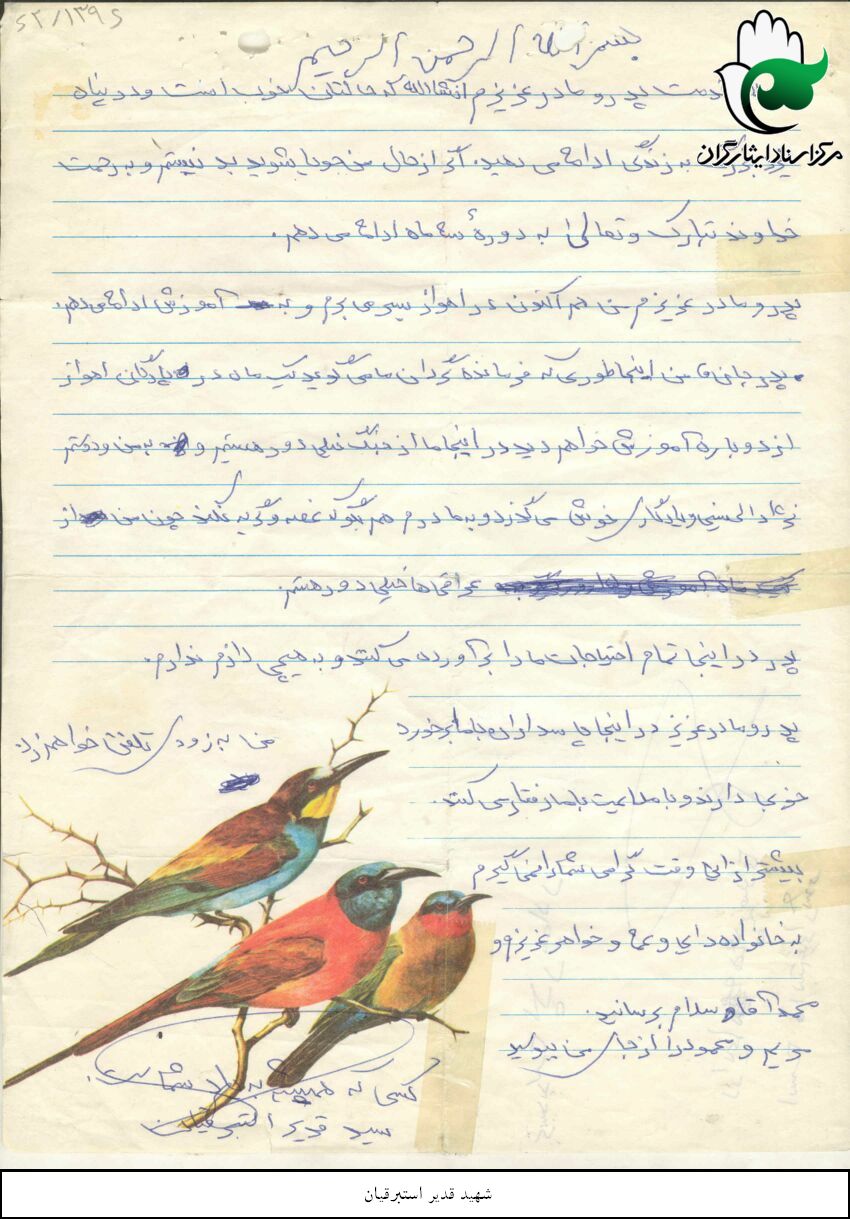 بسم الله الرحمن الرحیم
خدمت پدر و مادر عزیزم انشاءالله که حالتان خوب است و در پناه
به زندگی ادامه می دهید. اگر از حال من جویا شوید بد نیستم و به رحمت
خداوند تبارک و تعالی به دورهٔ سه ماه ادامه می دهم.
پدر و مادر عزیزم من هم اکنون در اهواز بسر می برم و به آموزش ادامه می دهم.
پدر جان من اینجا طوری که فرمانده گردان ما می گوید یک ماه در پادگان اهواز
از دوباره آموزش خواهم دید در اینجا ما از جنگ خیلی دور هستیم و به من و دوستم
خوش می گذرد و به مادرم هم بگو که غصه و گریه نکند چون من از
عراقی ها خیلی دور هستم.
پدر در اینجا تمام احتیاجات ما را برآورده می کنند و به هیچی لازم ندارم.
پدر و مادر عزیز در اینجا پاسداران با ما برخورد
خوبی دارند و با ملایمت با ما رفتار می کنند.
بیشتر از این وقت گرامی شما را نمی گیرم
به خانواده دایی و عمه و خواهر عزیزم و
محمد آقا سلام برسانید.
مریم و محمود را از جای من ببوسید
من به زودی تلفن خواهم زد.
کسی که همیشه به یاد شماست.
سید قدیر استبرقیان
مرکز اسناد ایثارگران
شهید قدیر استبرقیان